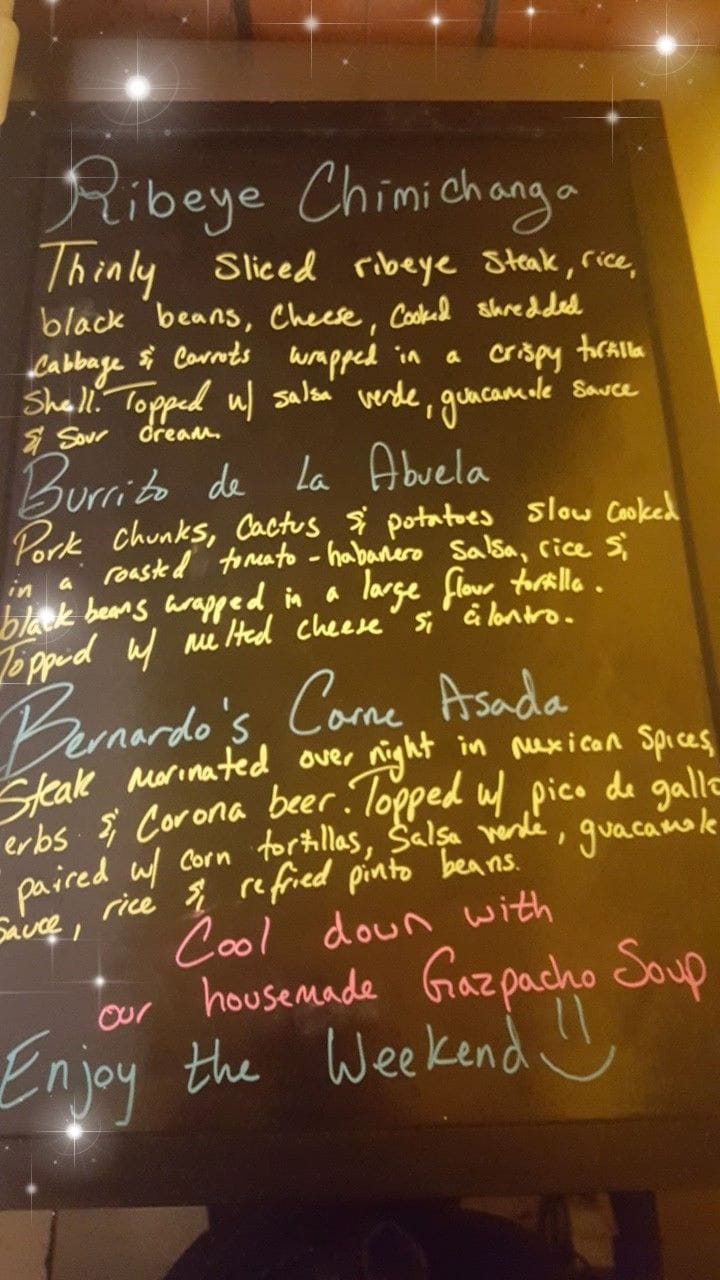 Ribeye Chimichanga
Thinly Sliced ribeye Steak, rice,
black beans, Cheese, Cooked shredded
Cabbage & Carrots wrapped in a crispy tortilla
Shell. Topped w/ salsa verde, guacamole Sauce
& Sour cream.
Burrito de La Abuela
Pork Chunks, Cactus & potatoes slow cooked
in a roasted tomato-habanero Salsa, rice &
black beans wrapped in a large flour tortilla.
Topped w/ melted cheese & cilantro.
Bernardo's Carne Asada
Steak marinated over night in mexican Spices,
erbs & Corona beer. Topped w/ pico de gallo
paired w/ corn tortillas, Salsa verde, guacamole
Sauce, rice & refried pinto beans.
Cool down with
our housemade Gazpacho Soup
Enjoy the Weekend